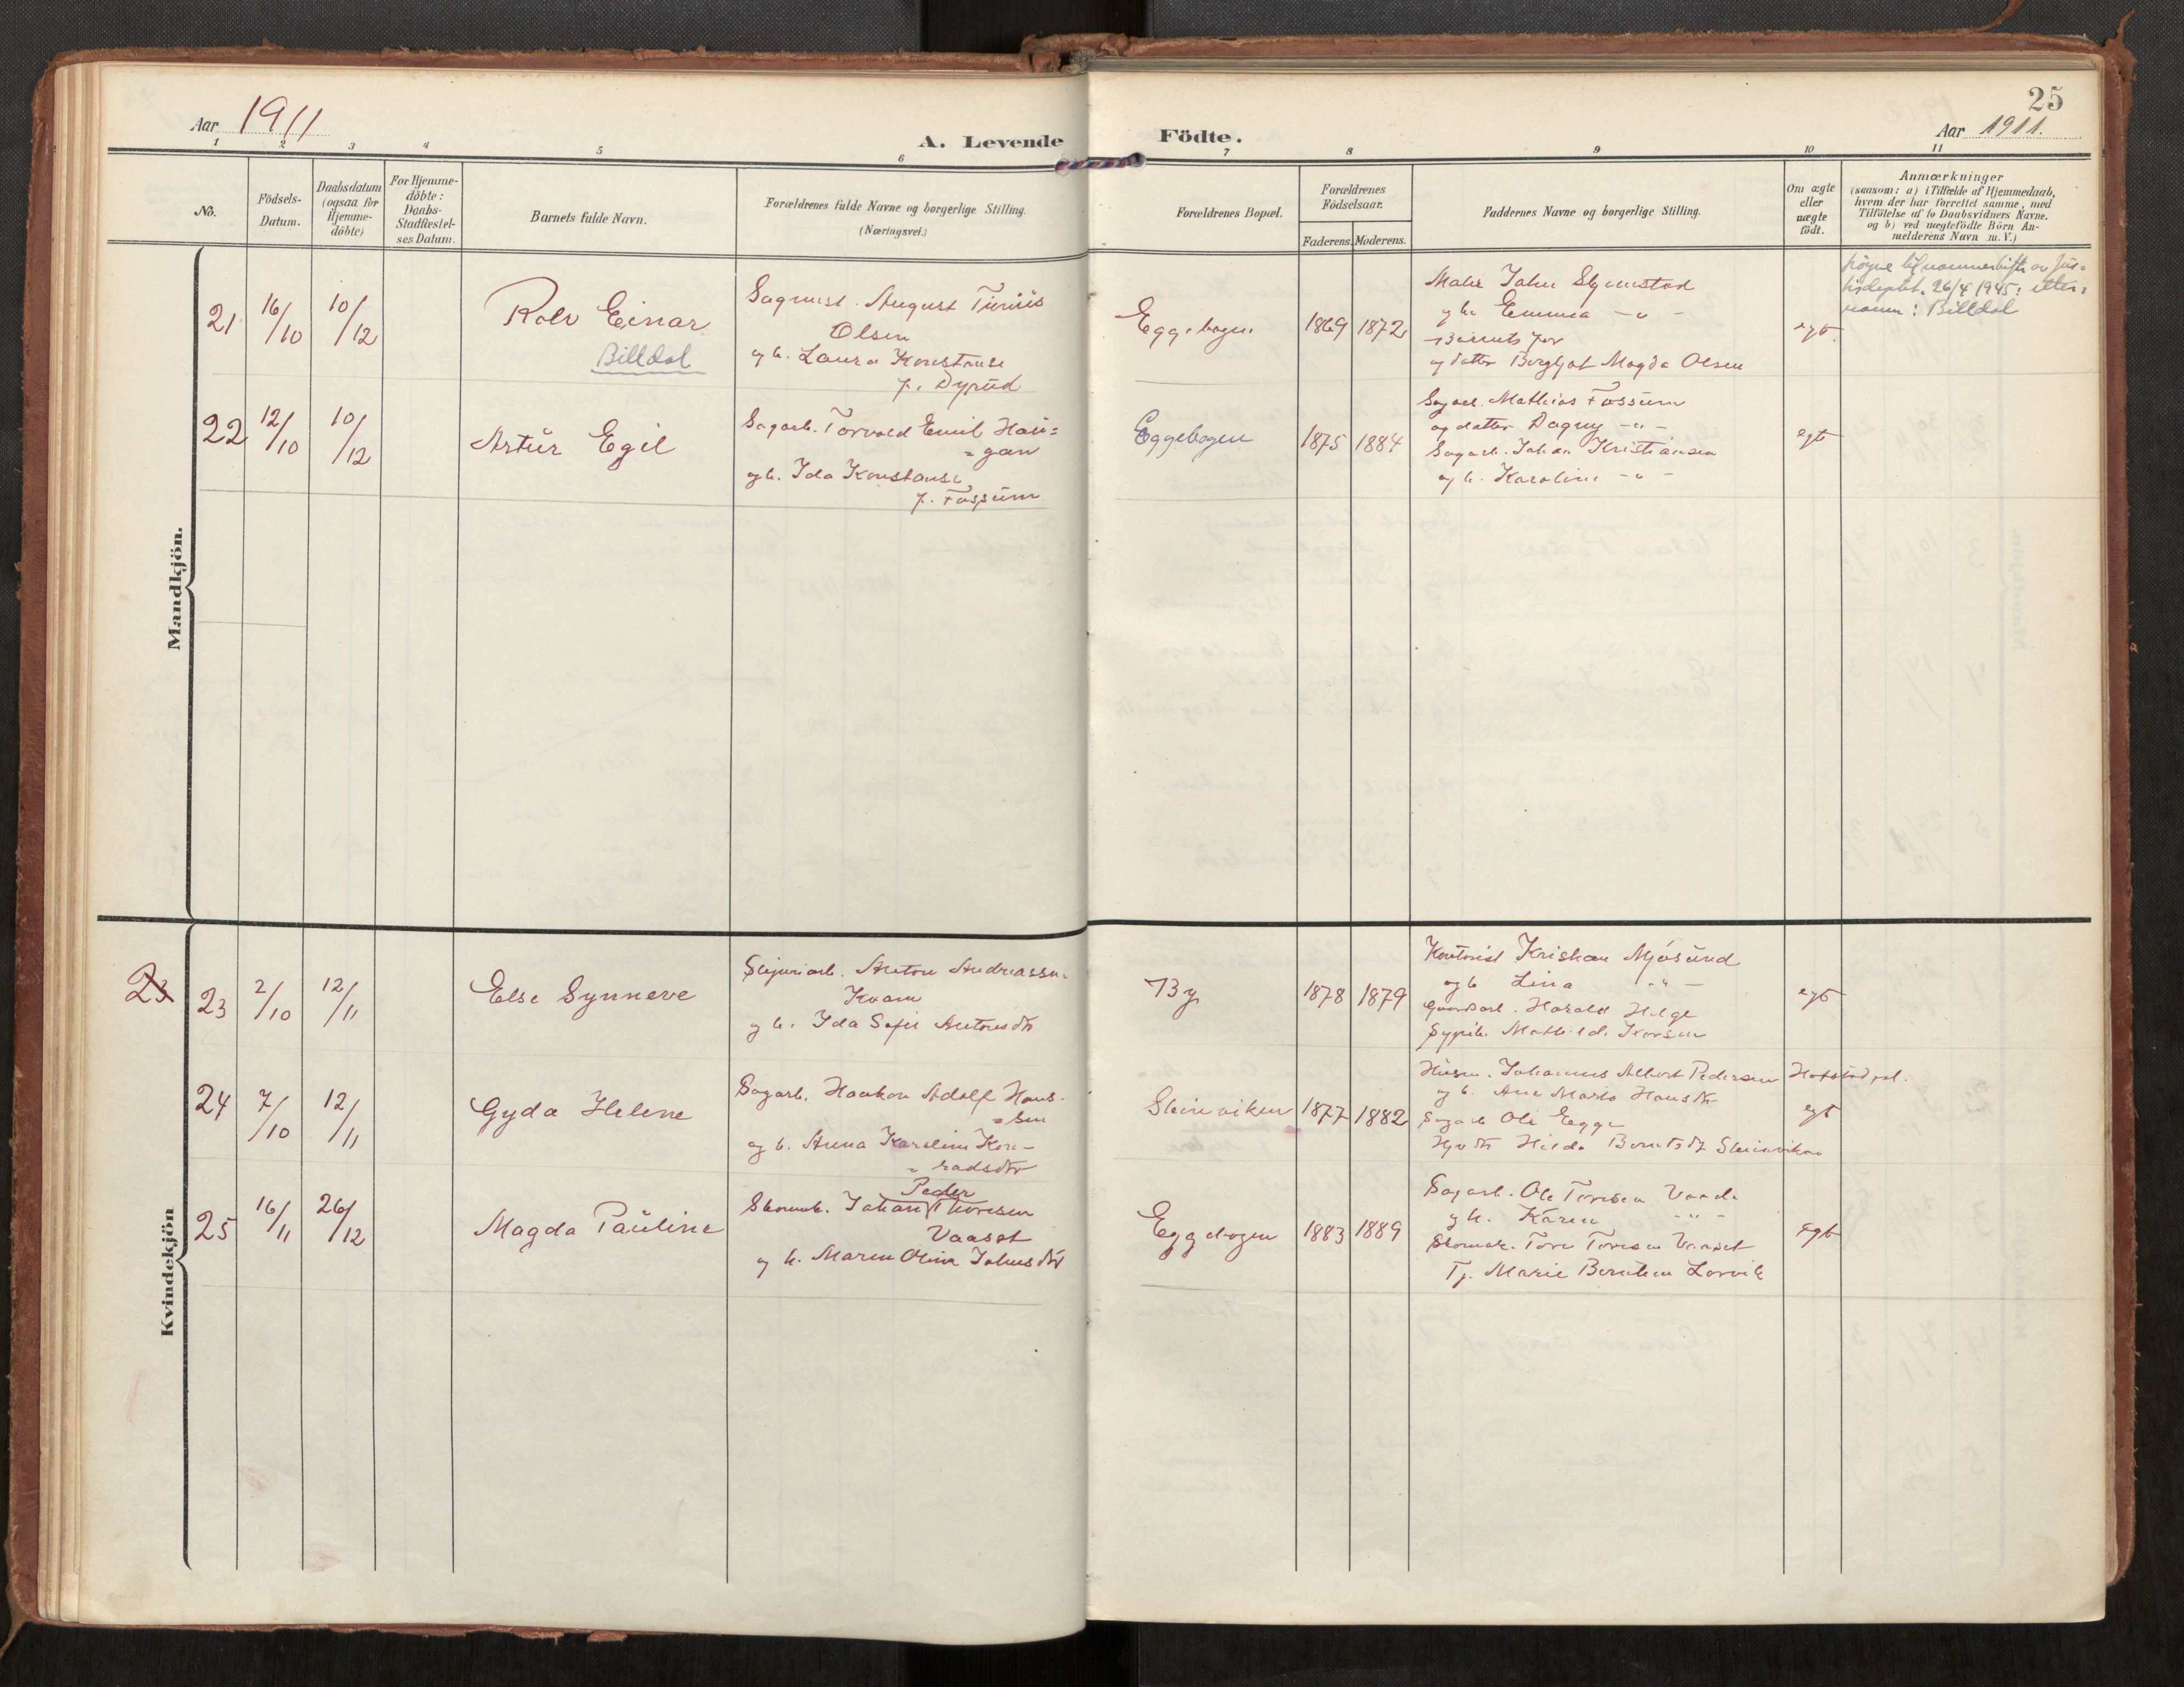 Aar 1911
A. Levende
1 2 3 4 5 6
No.
Födsels-
Datum.
Daabsdatum
(ogsaa for
Hjemme-
döbte)
For Hjemme-
döbte:
Daabs-
Stadfæstel-
ses Datum.
Barnets fulde Navn.
Forældrenes fulde Navne og borgerlige Stilling.
(Næringsvei.)
Mandkjön.
21 16/10 10/12 Rolv Einar
Billdal
August
Olsen
og h. Laura Konstanse
f. Dyrud
22 12/10 10/12 Artur Egil
Sagarb. Torvald Emil Hau=
=gan
og h. Ida Konstanse
f. Fossum
Kvindekjön
23 23 2/10 12/11 Else Synneve
Anton Andreassen
Kvam
og h. Ida Sofie Antonsdtr
24 7/10 12/11 Gyda Helene
Sagarb. Haakon Adolf Hans-
=sen
og h. Anna Karoline Kon-
=radsdtr
25 16/11 26/12 Magda Pauline
Peder
Johan Thoresen
Vaaset
og h. Maren Oline Johnsdtr
25
Födte.
Aar 1911.
7 8 9 10 11
Forældrenes Bopæl.
Forældrenes
Födselsaar.
Faderens. Moderens.
Faddernes Navne og borgerlige Stilling.
Om ægte
eller
uægte
födt.
Anmærkninger
(saasom: a) i Tilfælde af Hjemmedaab,
hvem der har forrettet samme, med
Tilföielse af to Daabsvidners Navne.
og b) ved uægtefödte Börn An-
melderens Navn m. V.)
Eggebogen 1869 1872
Maler John
og h. Emma -"-
Barnets far
og datter Bergljot Magda Olsen
egt.
26/4 1945: etter=
navn: Billdal
Eggebogen 1875 1884
Sagarb. Mathias Fossum
og datter Dagny -"-
Sagarb. Johan Kristiansen
og h. Karoline -"-
egt
By 1878 1879
Kontorist Kristian Mjösund
og h Lina -"-
Gaardarb. Harald Helge
Sypike Mathilde
egt
Steinviken 1877 1882
Husm. Johannes Albert Pedersen
og h. Ane Marta Hansdtr
Sagarb Ole Egge
Hilda Berntsdtr Steinviken
egt
Eggebogen 1883 1889
Sagarb. Ole Toresen
og h. Karen -"-
Skomak. Tore Toresen Vaaset
Tj. Marie Berntsen Lorvik
egt